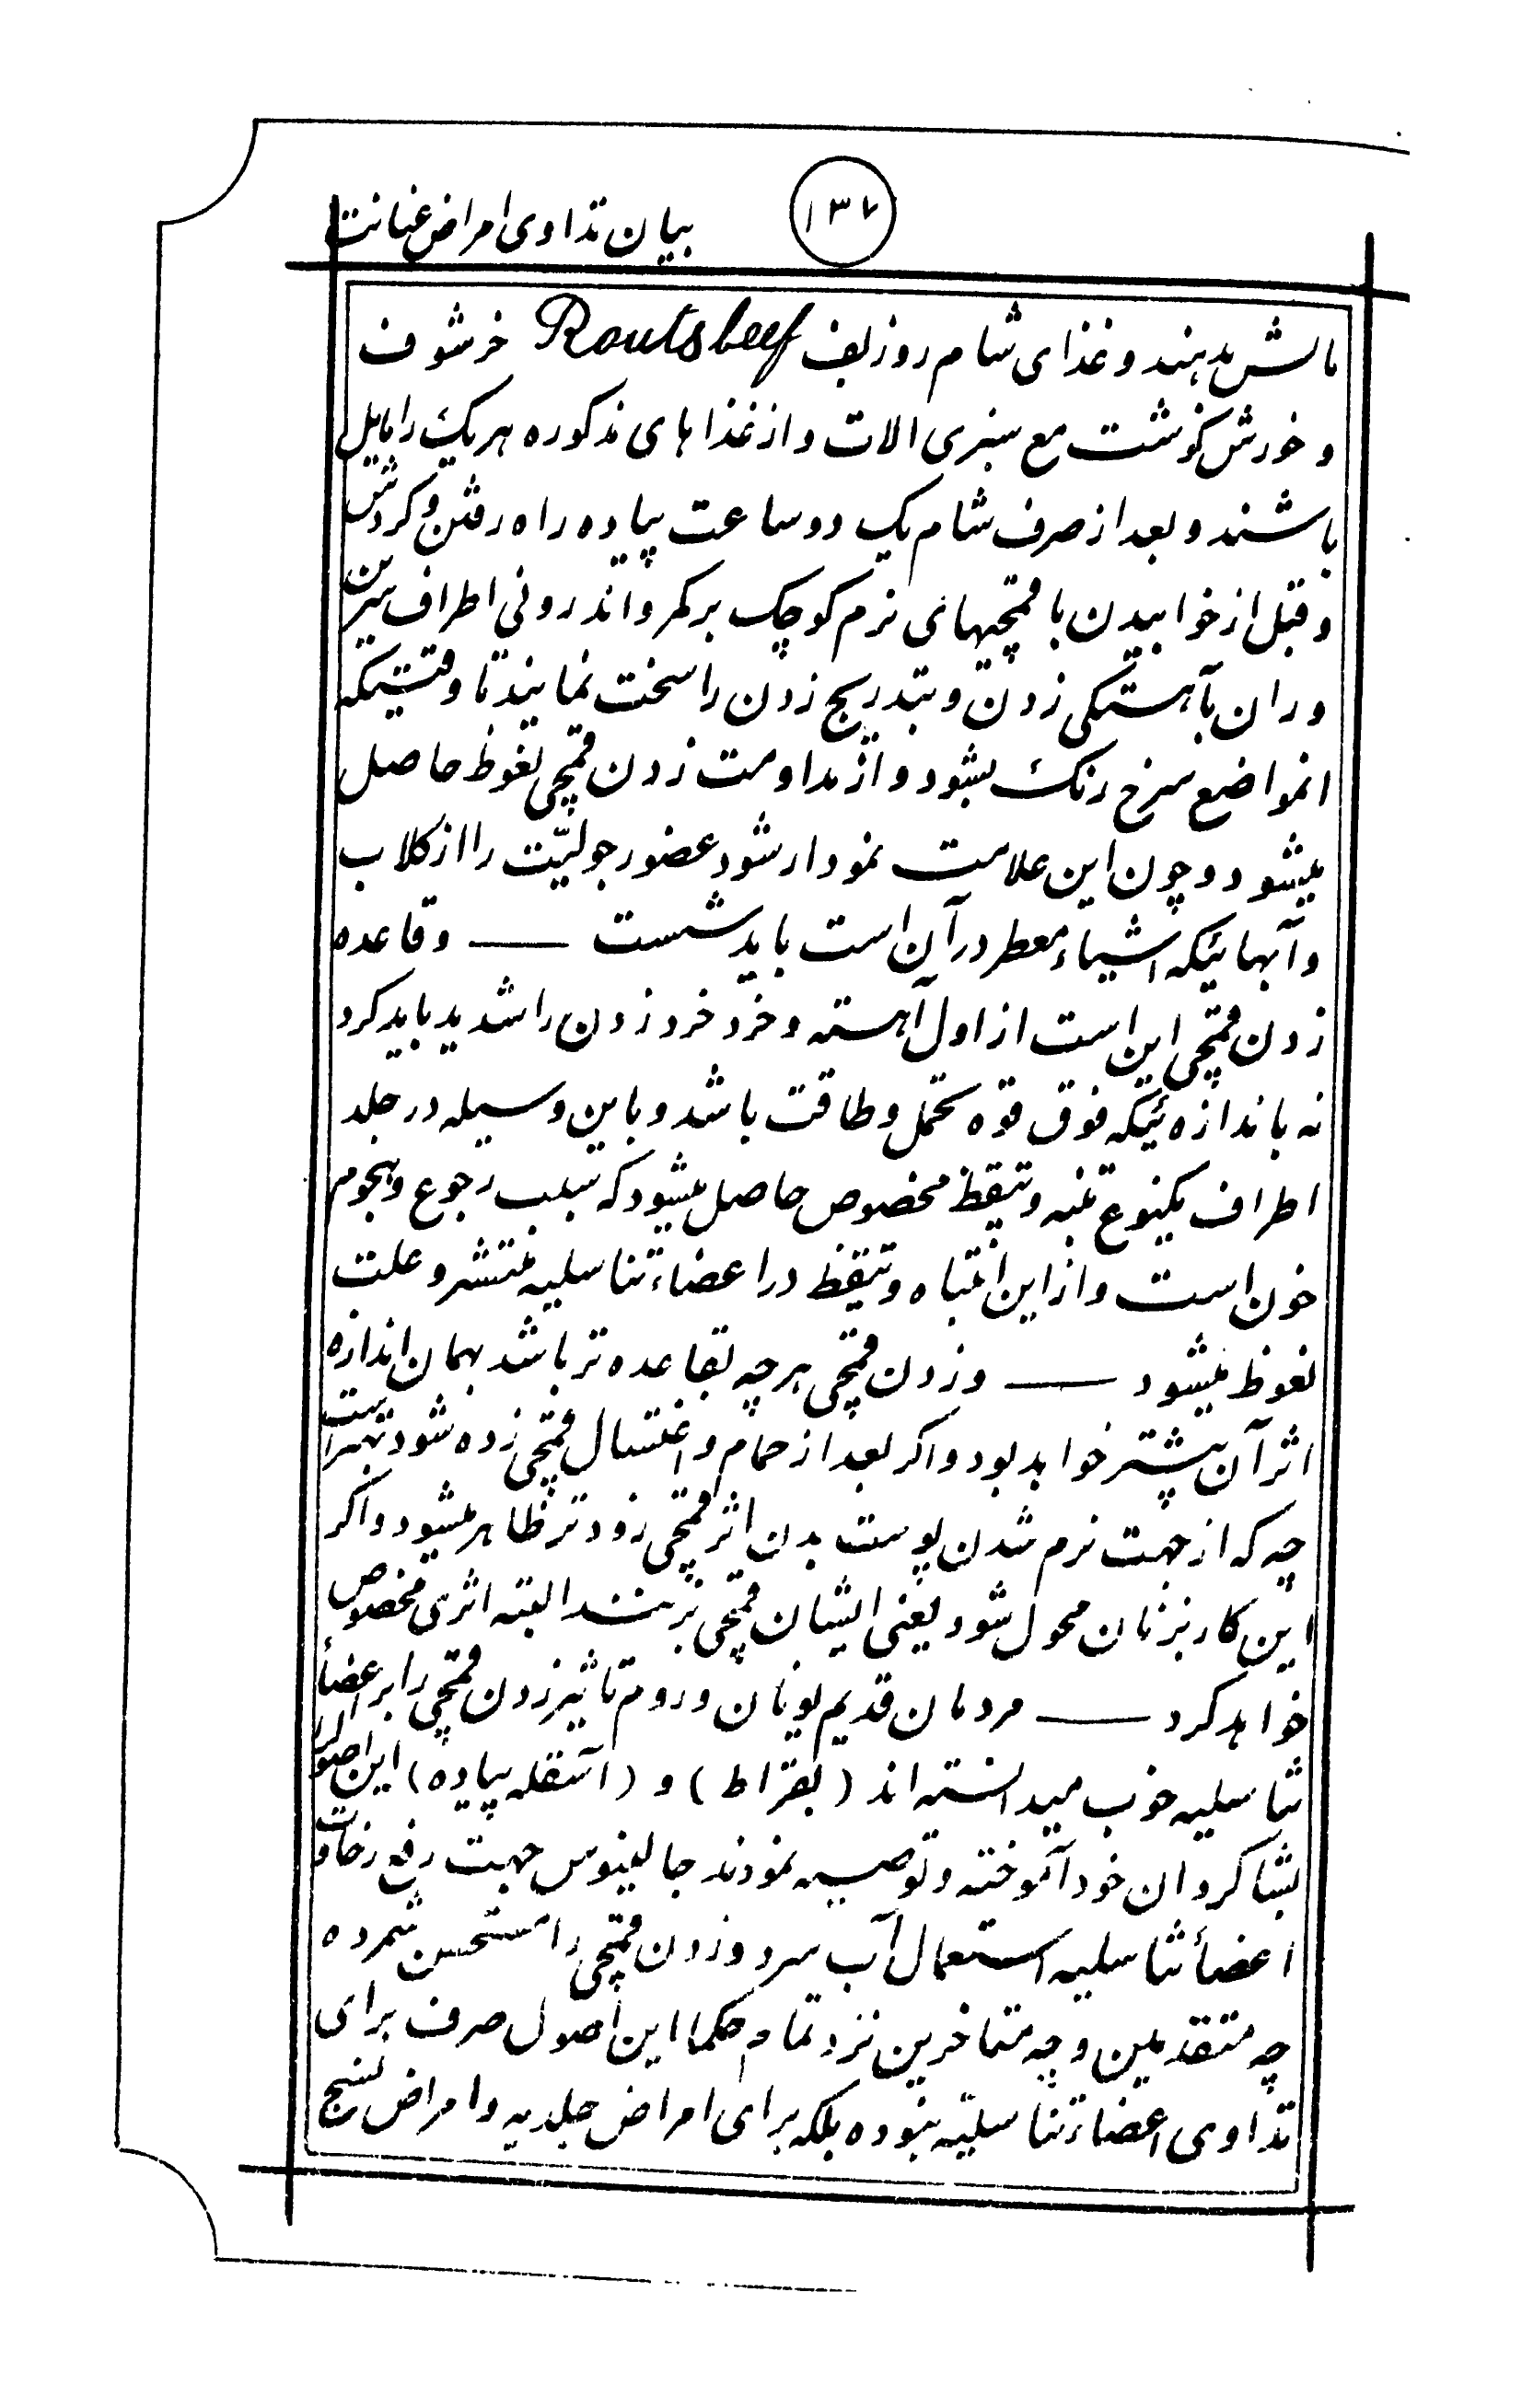 بیان تداوی امراض عنانت
۱۳۷
مالش بدهند و غذای شام روزبف Routsbeef خرشوف
و خورش گوشت مع سبزی الات و از غذاهای مذکوره هریک را مایل
باشند و بعد از صرف شام یک دو ساعت پیاده راه رفتن و کردش
و قبل از خوابیدن با قمچیهای نرم کوچک بر کمر و اندرونی اطراف سرین
و ران بآهستگی زدن و بتدریج زدن را سخت نمایند تا وقتیکه
انمواضع سرخ رنک بشود و از مداومت زدن قمچی نغوظ حاصل
میشود و چون این علامت نمودار شود عضو رجولیّت را از کلاب
و آبهائیکه اشیاء معطر در آن است باید شست — و قاعده
زدن قمچی این است از اول آهسته و خرد خرد زدن را شدید باید کرد
نه باندازه‌ئیکه فوق قوه تحمل و طاقت باشد و باین وسیله در جلد
اطراف یکنوع تنبه و تیقظ مخصوص حاصل میشود که سبب رجوع و هجوم
خون است و از این انتباه و تیقظ در اعضاء تناسلیه منتشر و علت
نغوظ میشود — و زدن قمچی هرچه بقاعده تر باشد بهمان اندازه
اثر آن بیشتر خواهد بود و اکر بعد از حمام و اغتسال قمچی زده شود بهتر است
چه که از جهت نرم شدن پوست بدن اثر قمچی زودتر ظاهر میشود و اکر
این کار بزنان محول شود یعنی ایشان قمچی بزنند البته اثری مخصوص
خواهد کرد — مردمان قدیم یونان و روم تاثیر زدن قمچی را بر اعضأ
تناسلیه خوب میدانسته اند (بقراط) و (آسقله پیاده) این اصول را
بشاکردان خود آموخته و توصیه نمودند جالینوس جهت رفع رخاوت
اعضأ تناسلیه استعمال آب سرد و زدن قمچی را مستحسن شمرده
چه متقدمین و چه متاخرین نزد تمام حکما این اصول صرف برای
تداوی اعضاء تناسلیّه نبوده بلکه برای امراض جلدیه و امراض